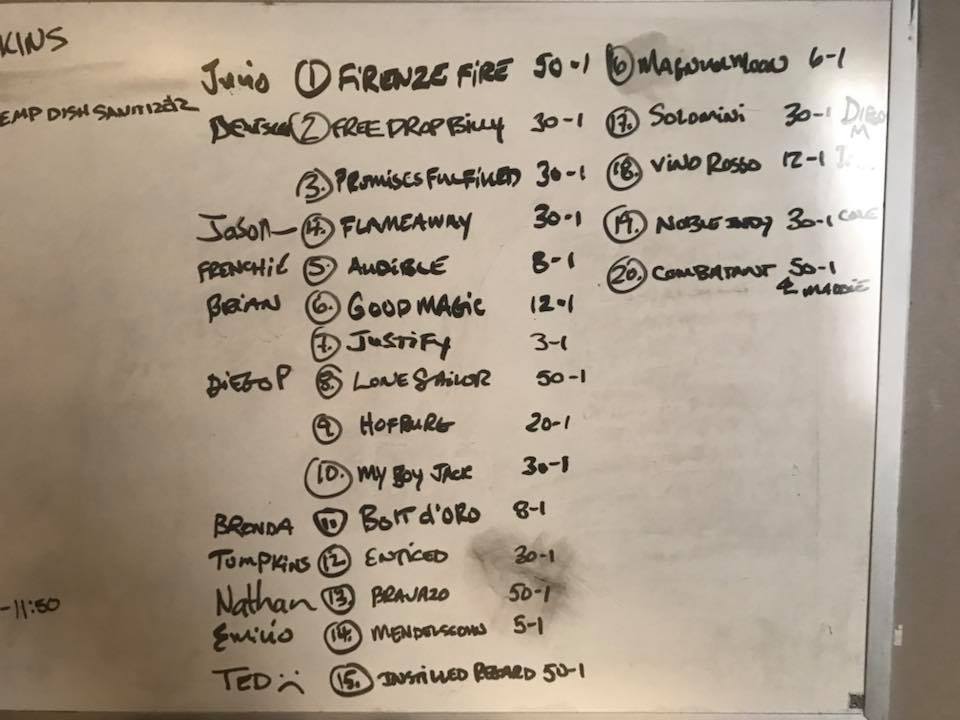 KINS
EMP DISH SANITIZER
Junio 1 FIRENZE FIRE 50-1
2 FREE DROP BILLY 30-1
3. PROMISES FULFILLED 30-1
Jason 4. FLAMEAWAY 30-1
FRENCHIE 5. AUDIBLE 8-1
BRIAN 6. GOOD MAGIC 12-1
7. JUSTIFY 3-1
DIEGO P 8. LONE SAILOR 50-1
9. HOFBURG 20-1
10. MY BOY JACK 30-1
BRENDA 11 BOLT d'ORO 8-1
TUMPKINS 12. ENTICED 30-1
Nathan 13. BRAVAZO 50-1
Emilio 14. MENDELSSOHN 5-1
TED 15. INSTILLED REGARD 50-1
MAGNUM MOON 6-1
17. SOLOMINI 30-1 DIEGO
M
18. VINO ROSSO 12-1
19. NOBLE INDY 30-1 COLE
20. COMBATANT 50-1
MADDIE
-11:50